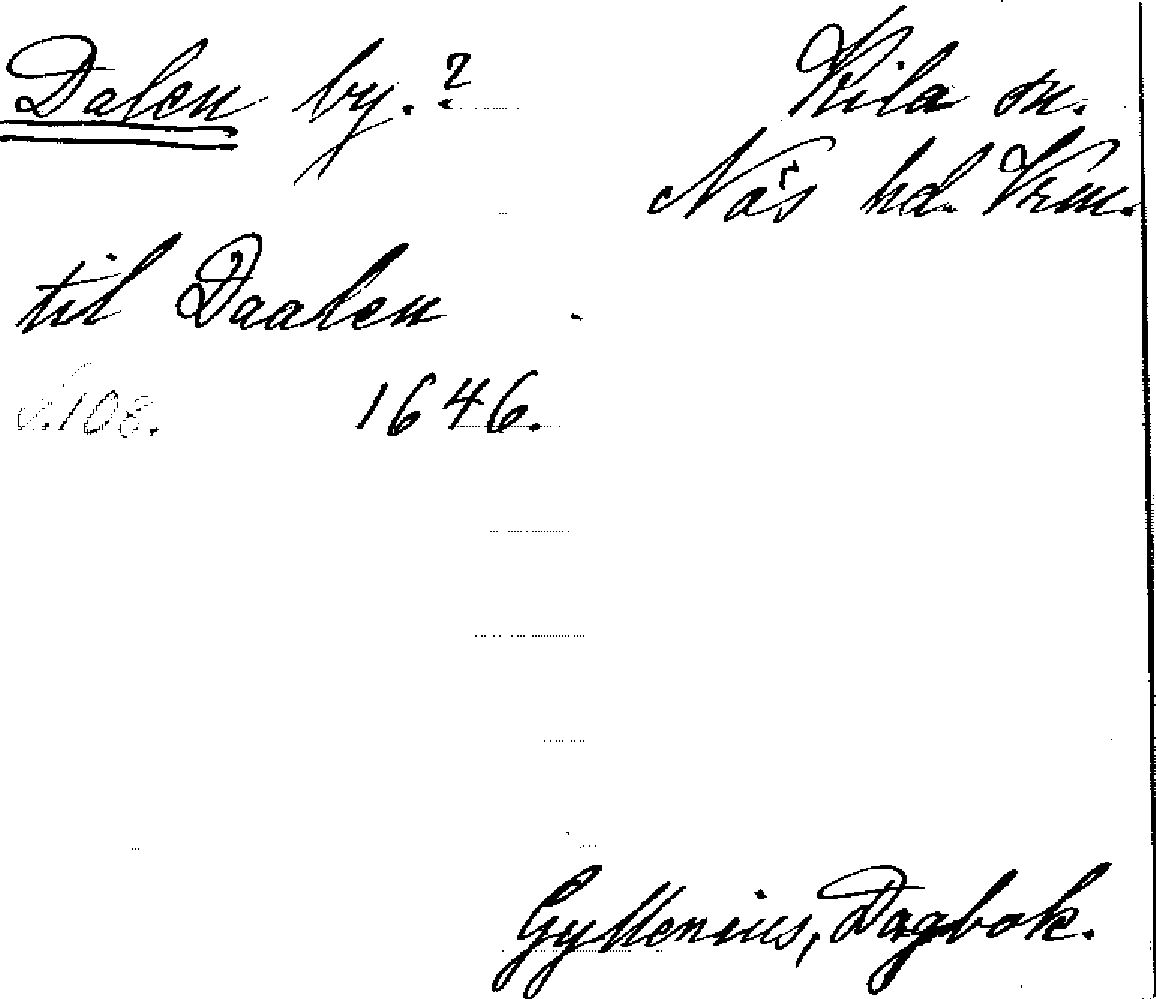 Dalen by.? Kila sn.
Näs hd. Vrm.
til Daalen
s. 108. 1646.
Gyllenius, Dagbok.